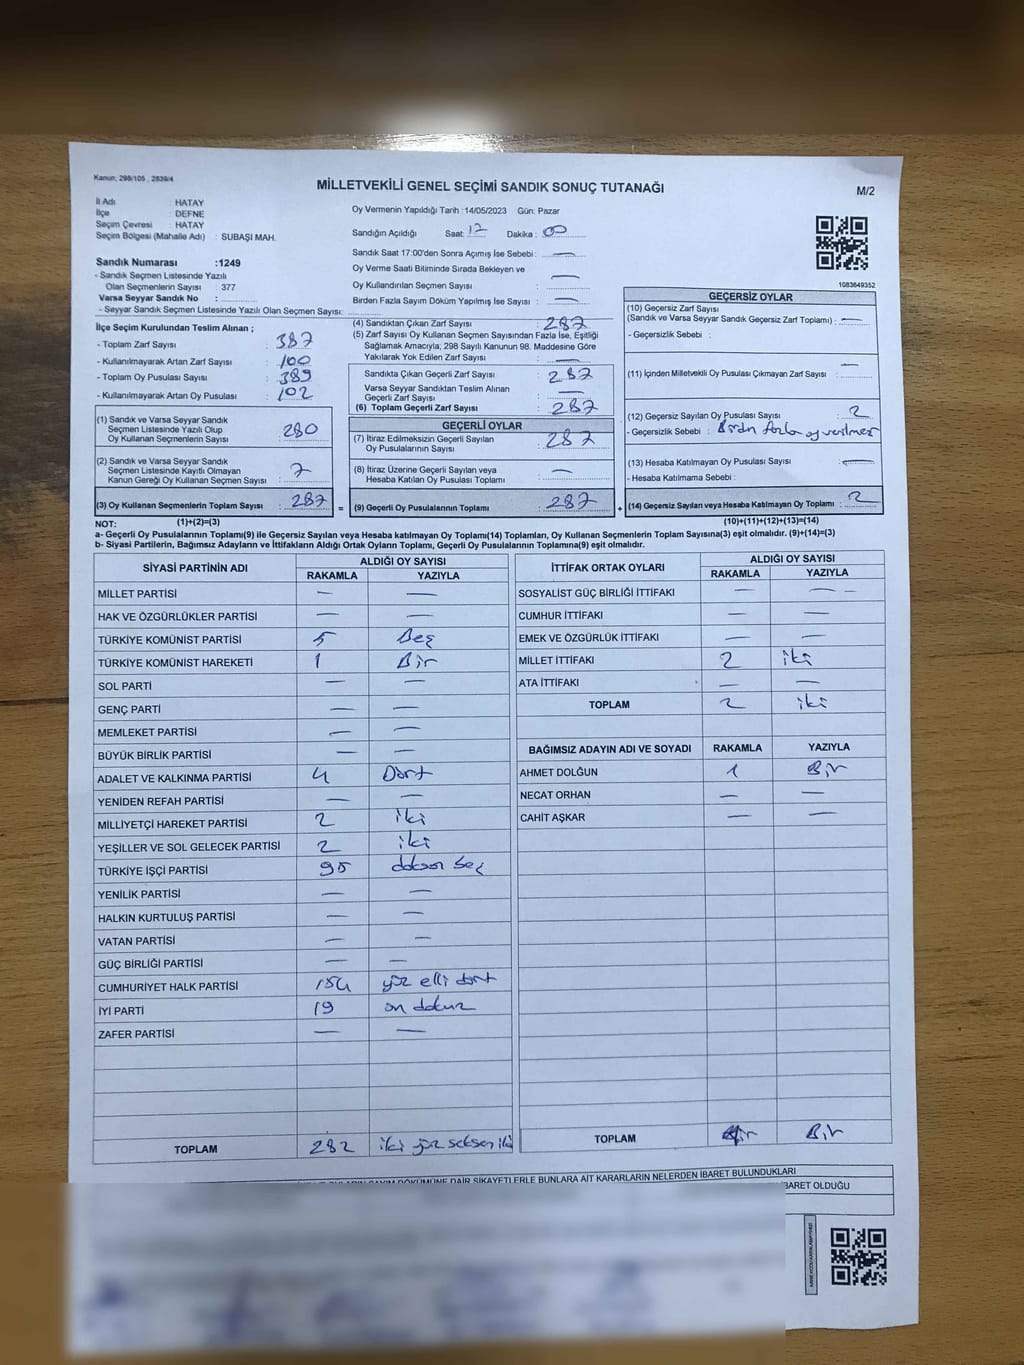 Kanun; 298/105 , 2839/4
MİLLETVEKİLİ GENEL SEÇİMİ SANDIK SONUÇ TUTANAĞI
M/2
İl Adı : HATAY
İlçe : DEFNE
Seçim Çevresi : HATAY
Seçim Bölgesi (Mahalle Adı) : SUBAŞI MAH.
Sandık Numarası :1249
- Sandık Seçmen Listesinde Yazılı
Olan Seçmenlerin Sayısı : 377
Varsa Seyyar Sandık No :
- Seyyar Sandık Seçmen Listesinde Yazılı Olan Seçmen Sayısı:
Oy Vermenin Yapıldığı Tarih :14/05/2023 Gün: Pazar
Sandığın Açıldığı Saat: 17 Dakika : 00
Sandık Saat 17:00'den Sonra Açımış İse Sebebi : —
Oy Verme Saati Bitiminde Sırada Bekleyen ve
Oy Kullandırılan Seçmen Sayısı : —
Birden Fazla Sayım Döküm Yapılmış İse Sayısı : —
1083649352
İlçe Seçim Kurulundan Teslim Alınan ;
- Toplam Zarf Sayısı : 387
- Kullanılmayarak Artan Zarf Sayısı : 100
- Toplam Oy Pusulası Sayısı : 389
- Kullanılmayarak Artan Oy Pusulası : 102
(1) Sandık ve Varsa Seyyar Sandık
Seçmen Listesinde Yazılı Olup
Oy Kullanan Seçmenlerin Sayısı : 280
(2) Sandık ve Varsa Seyyar Sandık
Seçmen Listesinde Kayıtlı Olmayan
Kanun Gereği Oy Kullanan Seçmen Sayısı : 7
(3) Oy Kullanan Seçmenlerin Toplam Sayısı : 287
(1)+(2)=(3)
(4) Sandıktan Çıkan Zarf Sayısı : 287
(5) Zarf Sayısı Oy Kullanan Seçmen Sayısından Fazla İse, Eşitliği
Sağlamak Amacıyla; 298 Sayılı Kanunun 98. Maddesine Göre
Yakılarak Yok Edilen Zarf Sayısı : —
Sandıkta Çıkan Geçerli Zarf Sayısı : 287
Varsa Seyyar Sandıktan Teslim Alınan
Geçerli Zarf Sayısı : —
(6) Toplam Geçerli Zarf Sayısı : 287
GEÇERLİ OYLAR
(7) İtiraz Edilmeksizin Geçerli Sayılan
Oy Pusulalarının Sayısı : 287
(8) İtiraz Üzerine Geçerli Sayılan veya
Hesaba Katılan Oy Pusulası Toplamı : —
= (9) Geçerli Oy Pusulalarının Toplamı : 287
GEÇERSİZ OYLAR
(10) Geçersiz Zarf Sayısı
(Sandık ve Varsa Seyyar Sandık Geçersiz Zarf Toplamı) : —
- Geçersizlik Sebebi :
(11) İçinden Milletvekili Oy Pusulası Çıkmayan Zarf Sayısı : —
(12) Geçersiz Sayılan Oy Pusulası Sayısı : 2
- Geçersizlik Sebebi : Birdn fazla oy verilmesi
(13) Hesaba Katılmayan Oy Pusulası Sayısı : —
- Hesaba Katılmama Sebebi :
+ (14) Geçersiz Sayılan veya Hesaba Katılmayan Oy Toplamı : 2
(10)+(11)+(12)+(13)=(14)
NOT:
a- Geçerli Oy Pusulalarının Toplamı(9) ile Geçersiz Sayılan veya Hesaba katılmayan Oy Toplamı(14) Toplamları, Oy Kullanan Seçmenlerin Toplam Sayısına(3) eşit olmalıdır. (9)+(14)=(3)
b- Siyasi Partilerin, Bağımsız Adayların ve İttifakların Aldığı Ortak Oyların Toplamı, Geçerli Oy Pusulalarının Toplamına(9) eşit olmalıdır.
SİYASİ PARTİNİN ADI ALDIĞI OY SAYISI
RAKAMLA YAZIYLA
MİLLET PARTİSİ — —
HAK VE ÖZGÜRLÜKLER PARTİSİ — —
TÜRKİYE KOMÜNİST PARTİSİ 5 Beş
TÜRKİYE KOMÜNİST HAREKETİ 1 Bir
SOL PARTİ — —
GENÇ PARTİ — —
MEMLEKET PARTİSİ — —
BÜYÜK BİRLİK PARTİSİ — —
ADALET VE KALKINMA PARTİSİ 4 Dört
YENİDEN REFAH PARTİSİ — —
MİLLİYETÇİ HAREKET PARTİSİ 2 iki
YEŞİLLER VE SOL GELECEK PARTİSİ 2 iki
TÜRKİYE İŞÇİ PARTİSİ 95 doksan beş
YENİLİK PARTİSİ — —
HALKIN KURTULUŞ PARTİSİ — —
VATAN PARTİSİ — —
GÜÇ BİRLİĞİ PARTİSİ — —
CUMHURİYET HALK PARTİSİ 154 yüz elli dört
İYİ PARTİ 19 on dokuz
ZAFER PARTİSİ — —
TOPLAM 282 iki yüz seksen iki
İTTİFAK ORTAK OYLARI ALDIĞI OY SAYISI
RAKAMLA YAZIYLA
SOSYALİST GÜÇ BİRLİĞİ İTTİFAKI — —
CUMHUR İTTİFAKI — —
EMEK VE ÖZGÜRLÜK İTTİFAKI — —
MİLLET İTTİFAKI 2 iki
ATA İTTİFAKI — —
TOPLAM 2 iki
BAĞIMSIZ ADAYIN ADI VE SOYADI RAKAMLA YAZIYLA
AHMET DOLĞUN 1 Bir
NECAT ORHAN — —
CAHİT AŞKAR — —
TOPLAM Bir Bir
DÖKÜMÜNE DAİR ŞİKAYETLERLE BUNLARA AİT KARARLARIN NELERDEN İBARET BULUNDUKLARI
İBARET OLDUĞU